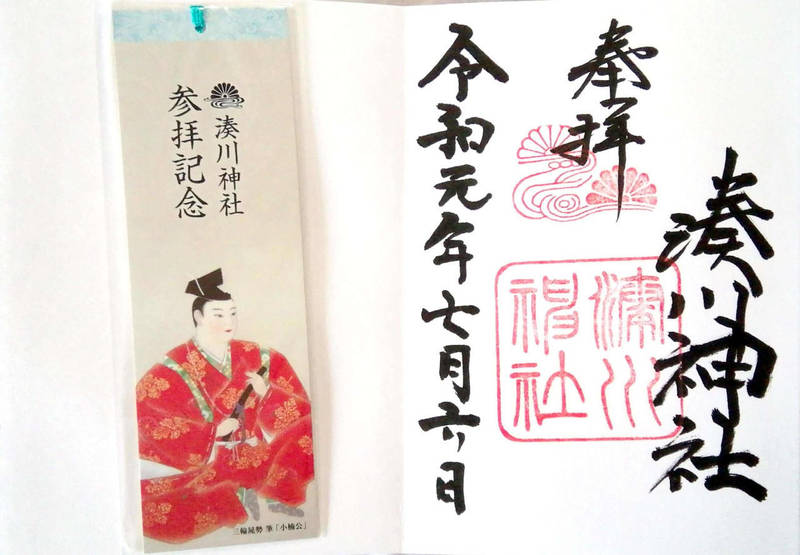 湊川神社
参拝記念
三輪晁勢 筆「小楠公」
奉拝
湊川神社
湊川
神社
令和元年七月六日